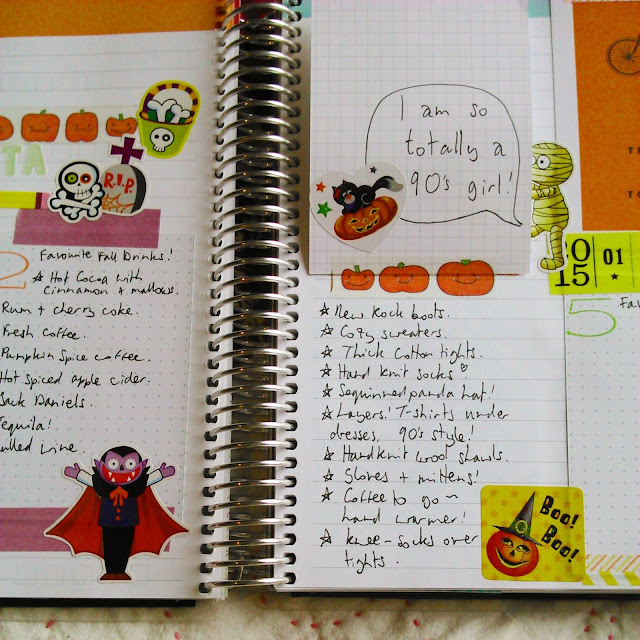 TA
R.I.P
2
Favourite Fall Drinks!
☆ Hot Cocoa with
cinnamon + mallows.
Rum + cherry coke.
Fresh Coffee
Pumpkin Spice coffee.
Hot spiced apple cider.
Jack Daniels
equila!
ulled wine.
I am so
totally a
90's girl!
☆ New Rock boots.
☆ Cozy sweaters.
☆ Thick Cotton tights.
☆ Hand knit socks ♡
☆ Sequinned panda hat!
☆ Layers! T-shirts under
dresses, 90's style!
☆ Hand knit wool shawls.
☆ Gloves + mittens!
☆ Coffee to go ~
hand warmer!
☆ knee-socks over
tights.
Boo!
Boo!
T
TO
20
15
01
★
5
Fav